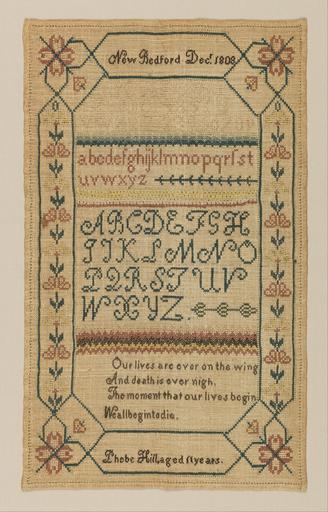 New Bedford Dec.r 1808
abcdefghijklmnopqrſst
uvwxyz
ABCDEFGH
IJKLMNO
PQRSTUV
WXYZ.
Our lives are ever on the wing
And death is ever nigh,
The moment that our lives begin,
We all begin to die.
Phebe Hill, aged 11 years.